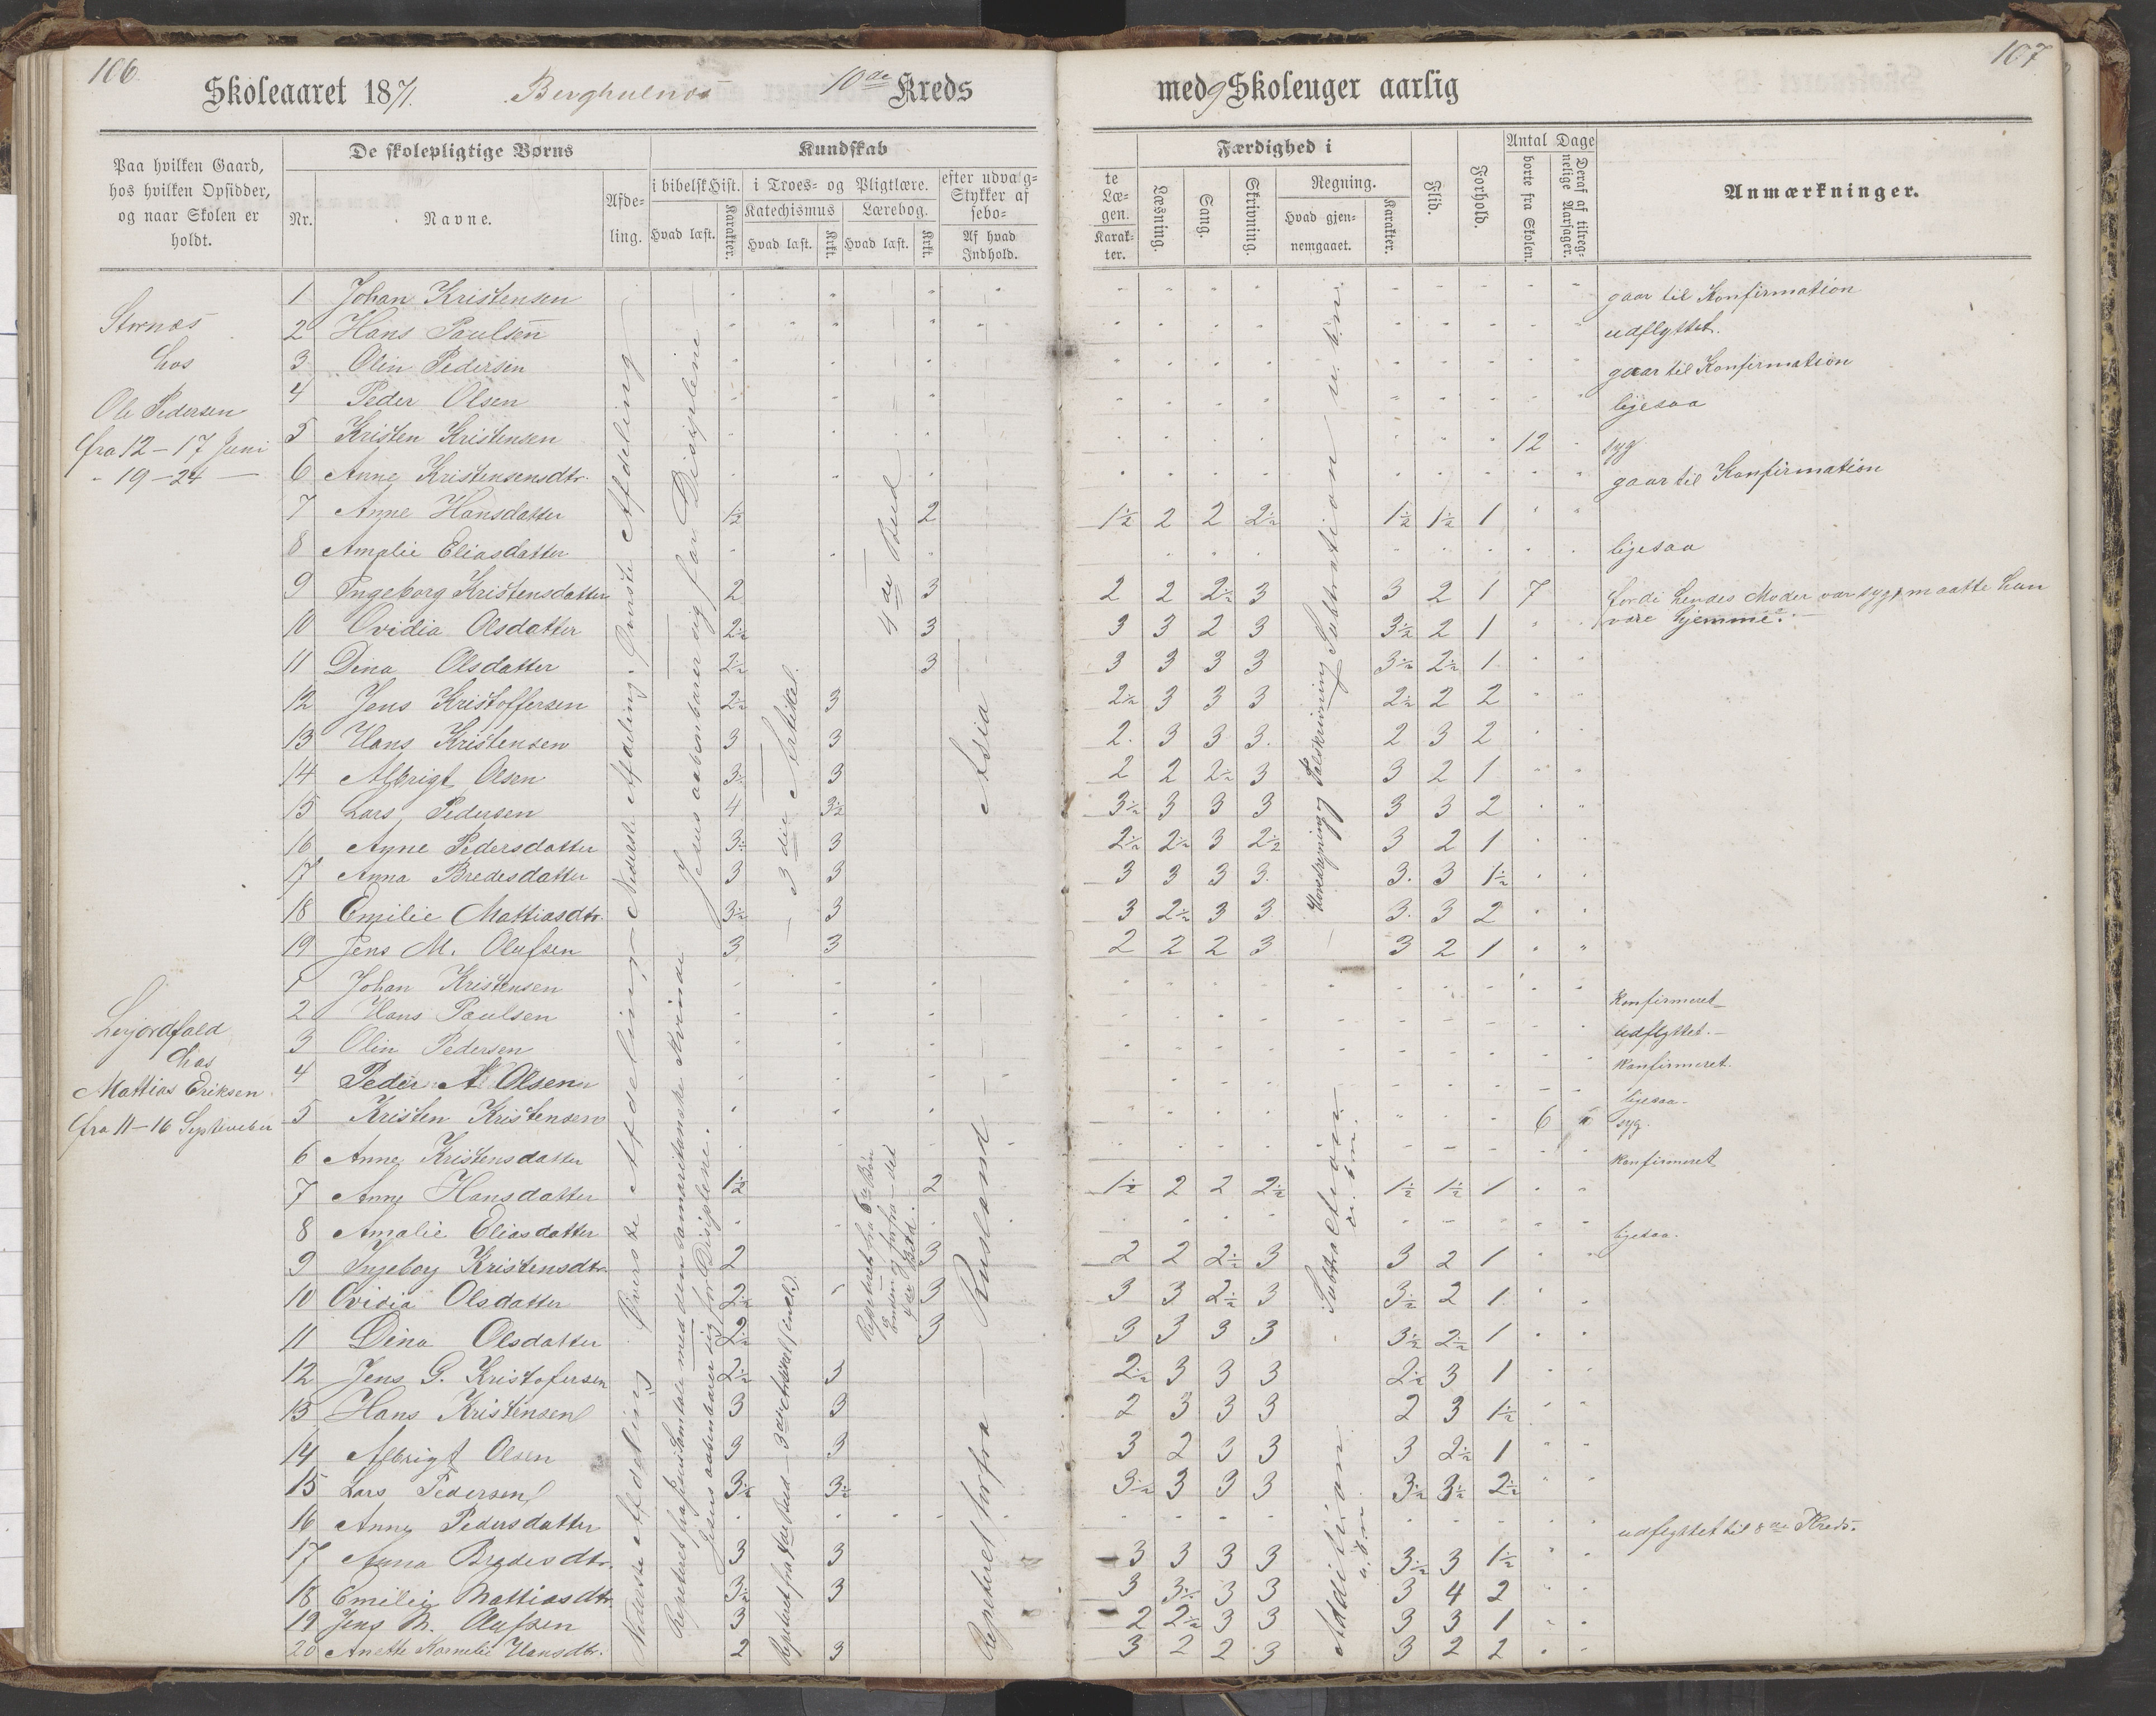 106.
107
Skoleaaret 1871. 10de Kreds
med 9 Skoleuger aarlig
Paa hvilken Gaard, hos hvilken Opsidder, og naar Skolen er holdt.
De skolepligtige Børns
Nr.
Navne.
Afde-
ling.
Kundskab
i bibelsk Hist.
Hvad læst.
Karakter.
i Troes- og Pligtlære.
Katechismus
Hvad læst.
Krkt.
Lærebog.
Hvad læst.
Krkt.
efter udvalg-
Stykker af
sebo-
Af hvad
Indhold.
te
Læ-
gen.
Karak-
ter.
Færdighed i
Læsning.
Sang.
Skrivning.
Regning.
Hvad gjen-
nemgaaet.
Karakter.
Flid.
Forhold.
Antal Dage
borte fra Skolen.
Deraf af tilreg-
nelige Aarsager.
Anmærkninger.
Stornæs
hos
Ole Pedersen
fra 12-17 Juni
" 19-24 —
1 Johan Kristensen gaar til Konfirmation
2 Hans Paulsen udflyttet.
3 Olin Pedersen gaar til Konfirmation
4 Peder Olsen ligesaa
5 Kristen Kristensen 12 syg
6 Anne Kristensensdtr. gaar til Konfirmation
7 Anne Hansdatter 1½ 2 1½ 2 2 2½ 1½ 1½ 1
8 Amalie Eliasdatter ligesaa
9 Ingeborg Kristensdatter 2 3 2 2 2½ 3 3 2 1 7 fordi hendes Moder var syg, maatte hun
være hjemme.
10 Ovidia Olsdatter 2½ 3 3 3 2 3 3½ 2 1
11 Dina Olsdatter 2½ 3 3 3 3 3 3½ 2½ 1
12 Jens Kristoffersen 2½ 3 2½ 3 3 3 2½ 2 2
13 Hans Kristensen 3 3 2 3 3 3 2 3 2
14 Albrigt Olsen 3½ 3 2 2 2½ 3 3 2 1
15 Lars Pedersen 4 3½ 3½ 3 3 3 3 3 2
16 Anne Pedersdatter 3½ 3 2½ 2½ 3 2½ 3 2 1
17 Anna Bredesdatter 3 3 3 3 3 3 3 3 1½
18 Emilie Mattiasdtr. 3½ 3 3 2½ 3 3 3 3 2
19 Jens M. Olufsen 3 3 2 2 2 3 3 2 1
Øverste Afdeling
Nederste Afdeling
Jesus aabenbarer sig for Disiplene
3die Artikel.
4de Bud
Asia
Subtraktion u. bn.
Lerjordfald
hos
Mattias Eriksen
fra 11-16 September
1 Johan Kristensen Konfirmeret
2 Hans Paulsen udflyttet.
3 Olin Pedersen Konfirmeret.
4 Peder A Olsen ligesaa.
5 Kristen Kristensen 6 syg.
6 Anne Kristensdatter Konfirmeret
7 Anne Hansdatter 1½ 2 1½ 2 2 2½ 1½ 1½ 1
8 Amalie Eliasdatter ligesaa.
9 Ingeborg Kristensdtr. 2 3 2 2 2½ 3 3 2 1
10 Ovidia Olsdatter 2½ 3 3 3 2½ 3 3½ 2 1
11 Dina Olsdatter 2½ 3 3 3 3 3 3½ 2½ 1
12 Jens G. Kristofersen 2½ 3 2½ 3 3 3 2½ 3 1
13 Hans Kristensen 3 3 2 3 3 3 2 3 1½
14 Albrigt Olsen 3 3 3 2 3 3 3 2½ 1
15 Lars Pedersen 3½ 3½ 3½ 3 3 3 3½ 3½ 2½
16 Anne Pedersdatter udflyttet til 8de Kreds.
17 Anna Bredesdtr. 3 3 3 3 3 3 3½ 3 1½
18 Emilie Mattiasdtr. 3½ 3 3 3½ 3 3 3 4 2
19 Jens M. Olufsen 3 2 2½ 3 3 3 3 1
20 Anette Kornelie Hansdtr. 2 3 3 2 2 3 3 2 2
Øverste Afdeling
Nederste Afdeling
Repeteret fra Jesu Samtale med den samaritanske Kvinde
Jesus aabenbarer sig for Disiplene.
Repeteret fra 4de Bud — 3die Artikel
Repeteret forfra — Rusland
Addition